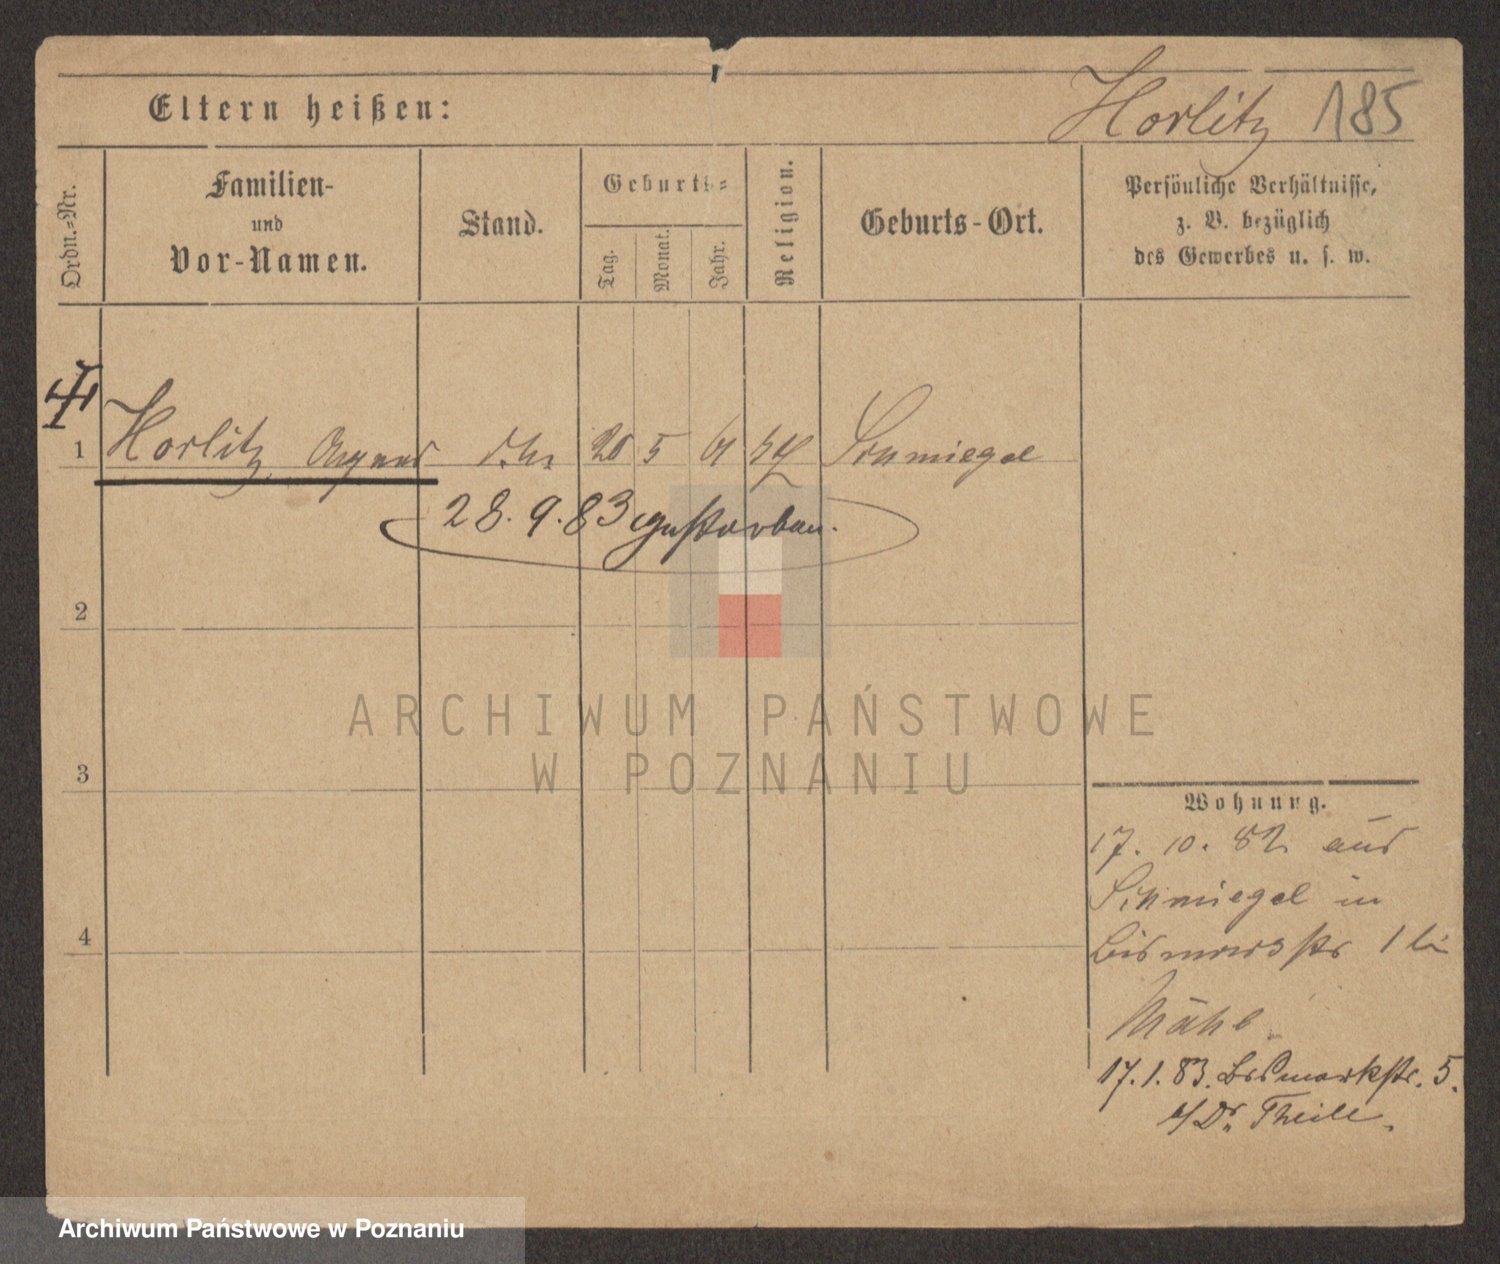 Eltern heißen: Horlitz 185
Ordn.=Nr.
Familien-
und
Vor-Namen.
Stand.
Geburts=
Tag.
Monat.
Jahr.
Religion.
Geburts-Ort.
Persönliche Verhältnisse,
z. B. bezüglich
des Gewerbes u. s. w.
1 Horlitz Agnes 20 5 61 Schmiegel
28. 9. 83 gestorben.
2
3
4
Wohnung.
17. 10. 82 aus
Schmiegel in
Bismarckstr 1 bei
17. 1. 83. Bismarkstr. 5.
b/ Dr. Theile.
ARCHIWUM PAŃSTWOWE
W POZNANIU
Archiwum Państwowe w Poznaniu